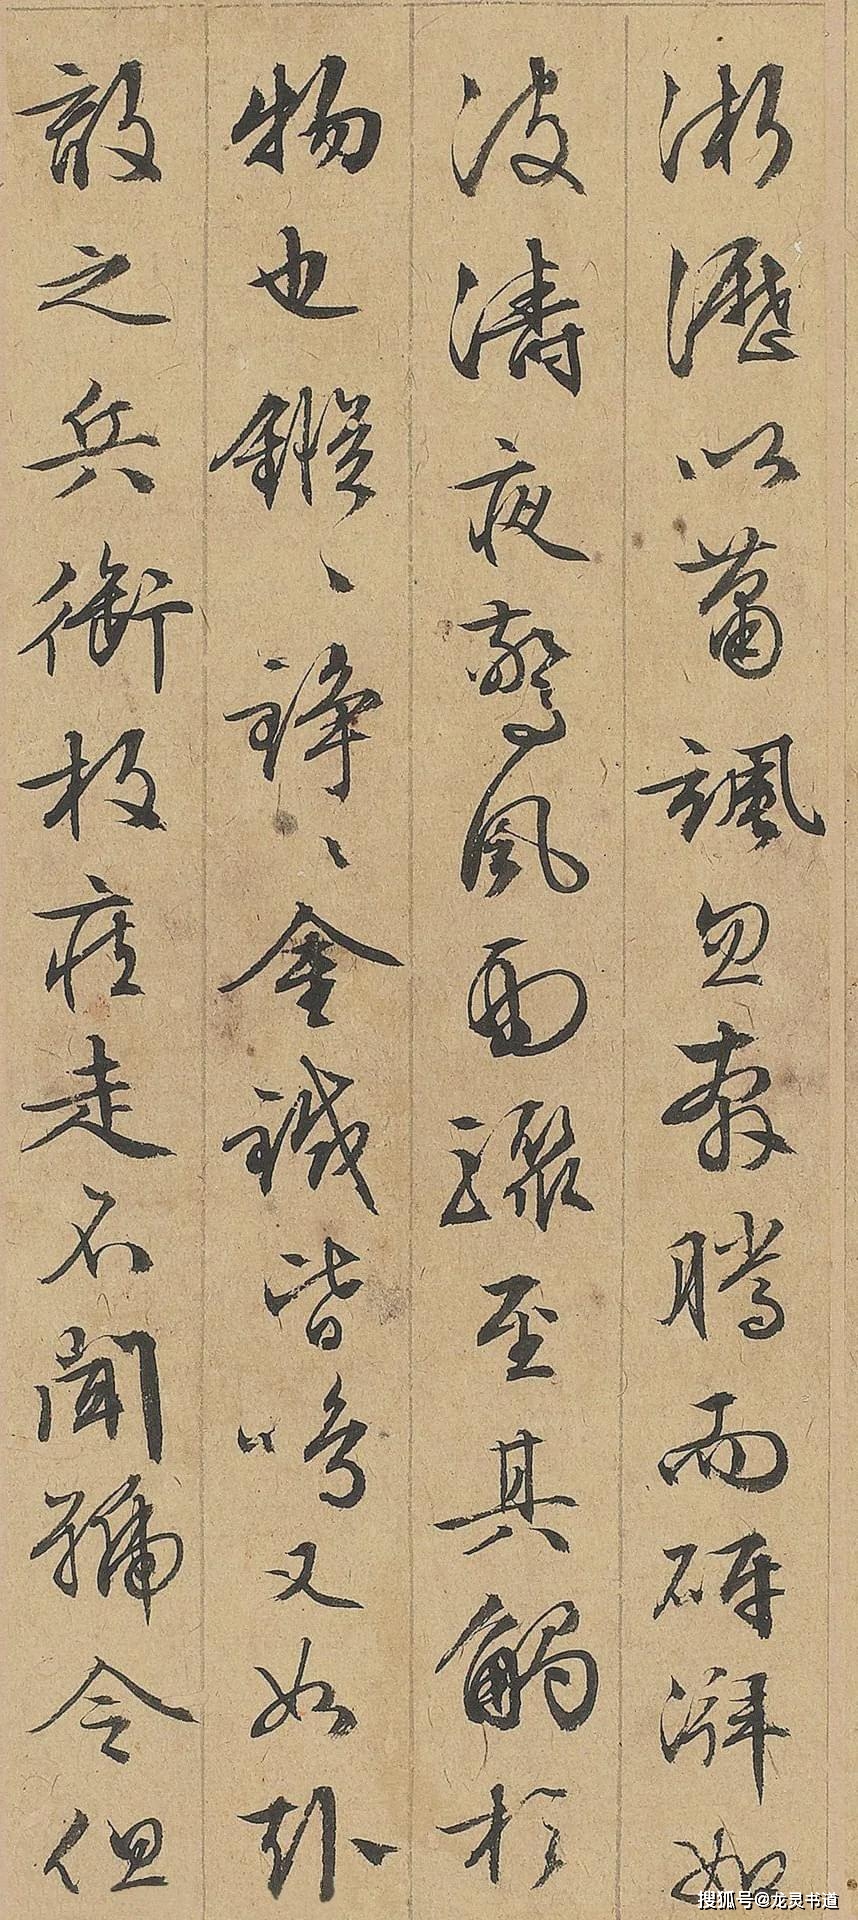 淅瀝以蕭颯忽奔騰而砰湃如
波濤夜驚風雨驟至其觸於
物也鏦〻錚〻金鐵皆鳴又如赴
敵之兵銜枚疾走不聞號令但
搜狐号@龙灵书道